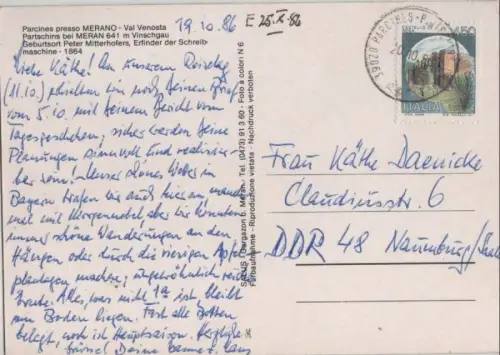 Parcines presso MERANO - Val Venosta
Partschins bei MERAN 641 m Vinschgau
Geburtsort Peter Mitterhofers, Erfinder der Schreib-
maschine - 1864
19.10.86
E 25.X.86
Liebe Käthe! An unserem Reisetag
(11.10.) erhielten wir noch Deinen Brief
vom 5.10. mit Deinem Bericht vom
Tagesgeschehen; sicher werden Deine
Planungen sinnvoll und realisier-
bar sein! Unser schönes Wetter in
Bayern trafen wir auch hier an, manch-
mal mit Morgennebel aber wir konnten
immer schöne Wanderungen an den
Hängen oder durch die riesigen Apfel-
plantagen machen; ungewöhnlich reiche
Ernte. Alles, was nicht 1a ist, bleibt
am Boden liegen. Fast alle Betten
belegt, noch ist Hauptsaison. Herzliche
Grüsse! Deine
SIRIUS Burggrafen b. Meran - Tel. (0473) 91 3 60 - Foto a colori N 6
Farbaufnahme - Riproduzione vietata - Nachdruck verboten
39020 PARCINES-PARTSCHINS
20.10.86
450
ITALIA
Frau Käthe Daenicke
Claudiusstr. 6
DDR 48 Naumburg/Saale